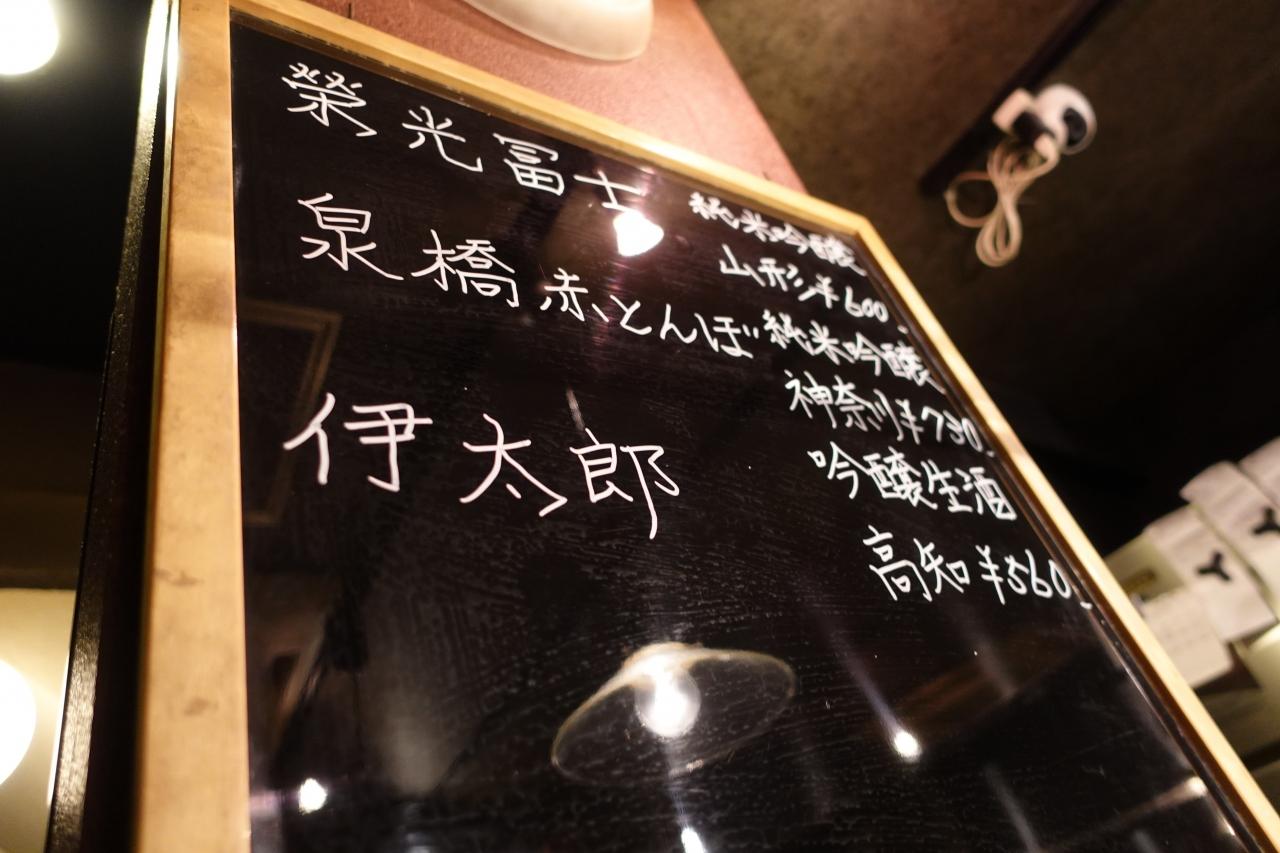 榮光冨士 純米吟醸
山形¥600.
泉橋赤とんぼ 純米吟醸
神奈川¥730.
伊太郎 吟醸生酒
高知¥560.